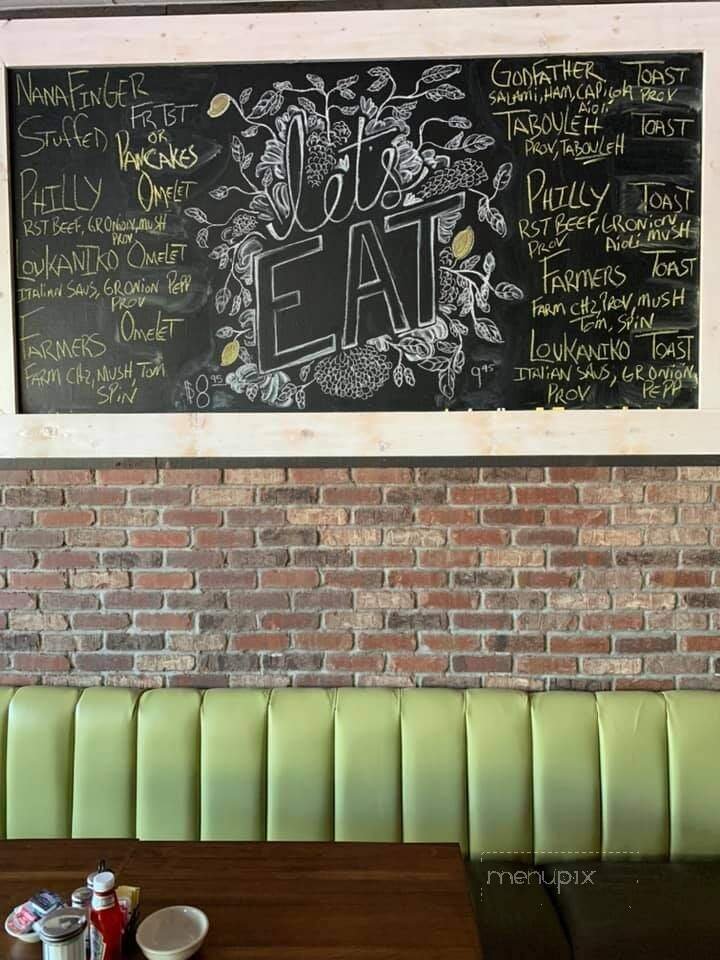 NANAFINGER
FR TST
STUFFED OR
PANCAKES
PHILLY OMELET
RST BEEF, GRONION, MUSH
PROV
LOUKANIKO OMELET
ITALIAN SAUS, GRONION PEPP
PROV
FARMERS OMELET
FARM CHZ, MUSH, TOM
SPIN
$8.95
let's
EAT
9.95
GODFATHER TOAST
SALAMI, HAM, CAPICOLA PROV
AIOLI
TABOULEH TOAST
PROV, TABOULEH
PHILLY TOAST
RST BEEF, GRONION,
PROV AIOLI MUSH
FARMERS TOAST
FARM CHZ, PROV, MUSH
TOM, SPIN
LOUKANIKO TOAST
ITALIAN SAUS, GRONION,
PROV PEPP
menupix